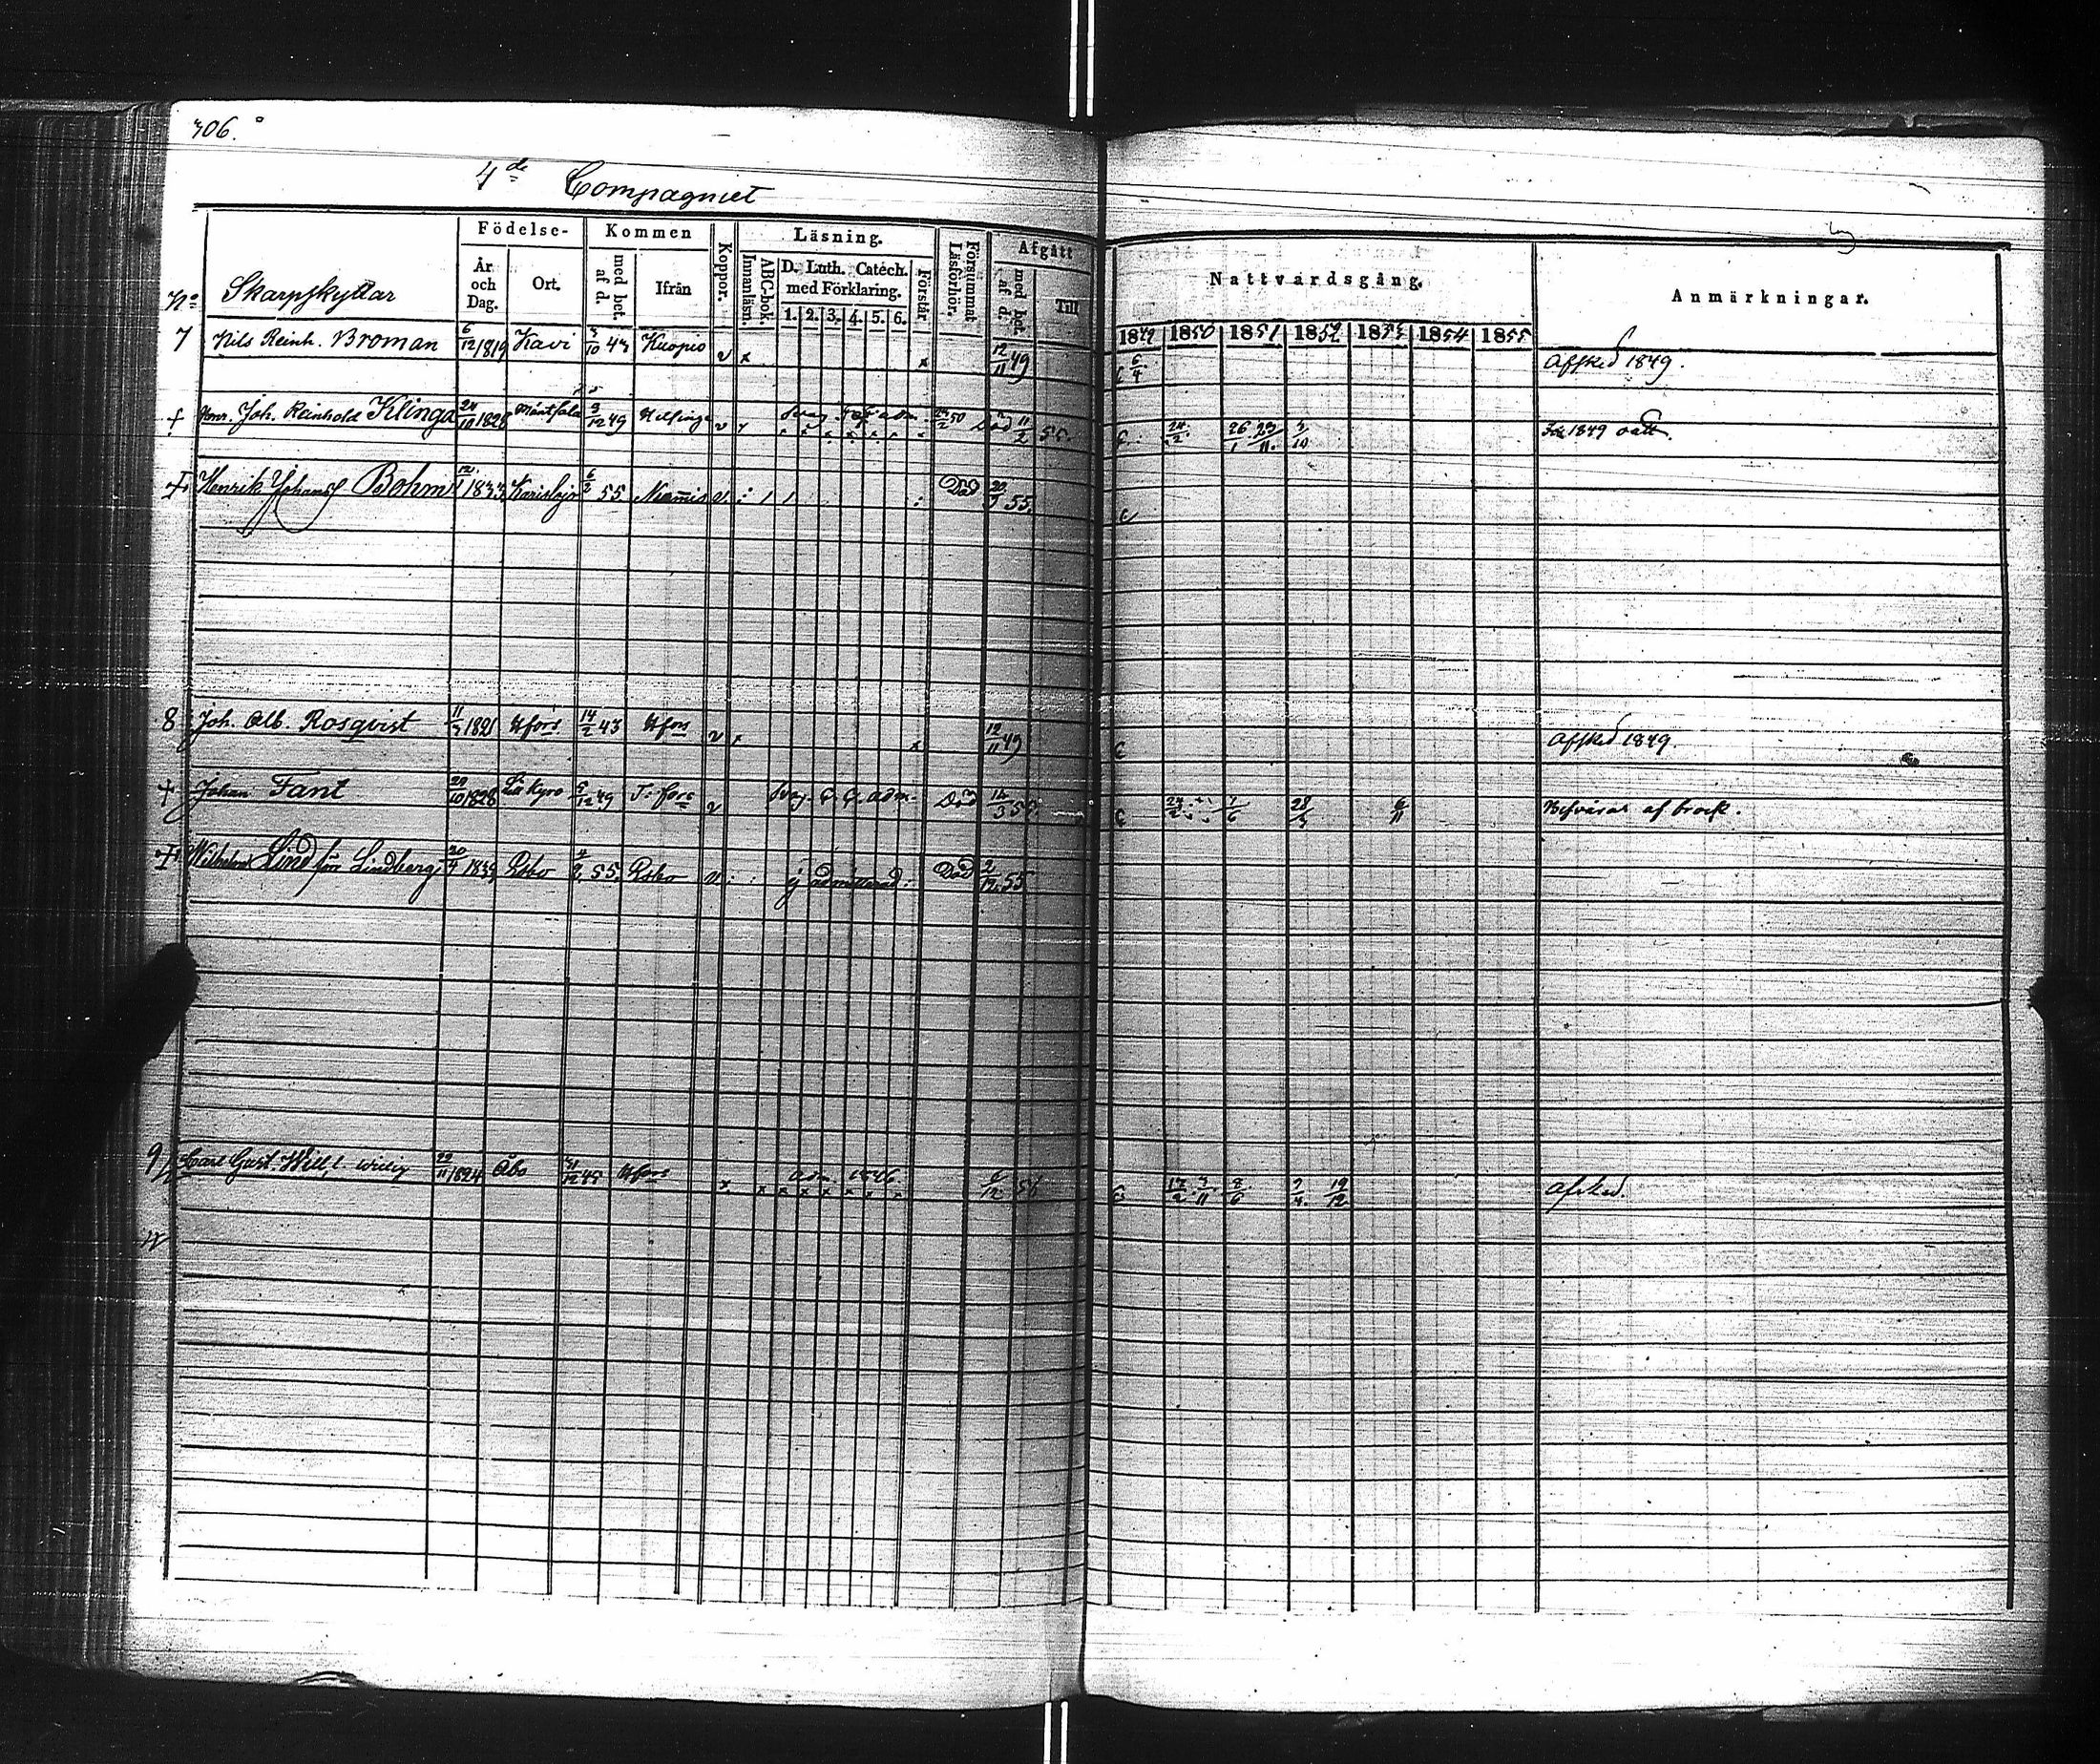 306.
4de Compagniet
No Skarpskyttar
Födelse-
År och Dag.
Ort.
Kommen
med bet. af d.
Ifrån
Koppor.
Läsning.
Innanläsn.
ABC-bok.
D. Luth. Catéch. med Förklaring.
1. 2. 3. 4. 5. 6.
Förstår
Försummat Läsförhör.
Afgått
med bet. af d.
Till
Nattvardsgång.
1849 1850 1851 1852 1853 1854 1855
Anmärkningar.
7 Nils Reinh. Broman 6/12 1819 Kavi 3/10 43 Kuopio v x x 12/11 49 6/4 Afsked 1849.
+ Joh. Reinhold Klinga 24/10 1828 3/12 49 Helsinge v Svag adm. Död 11/2 55. 24/2 26/1 23/11 3/10 1849
+ Henrik Johans Bohm 12/1 1833 Karislojo 6/2 55 Nummis Död 55.
8 Joh. Alb. Rosqvist 11/3 1821 Hfors 14/2 43 Hfors v x x 12/11 49 Afsked 1849.
+ Johan Fant 29/10 1828 Kyro 5/12 49 T. fors v Svag. adm. Död 14/3 24/2 1/6 28/3 Besväras af brock.
+ Wilhelm Lind förr Lindberg 20/4 1835 Esbo 4/2 55. Esbo ej admitterad. Död 2/12 55
9 Carl Gust. Will l. Willig 29/11 1824 Åbo Hfors x adm. 1846 x x x x x x 17/2 3/11 8/6 19/12 Afsked.